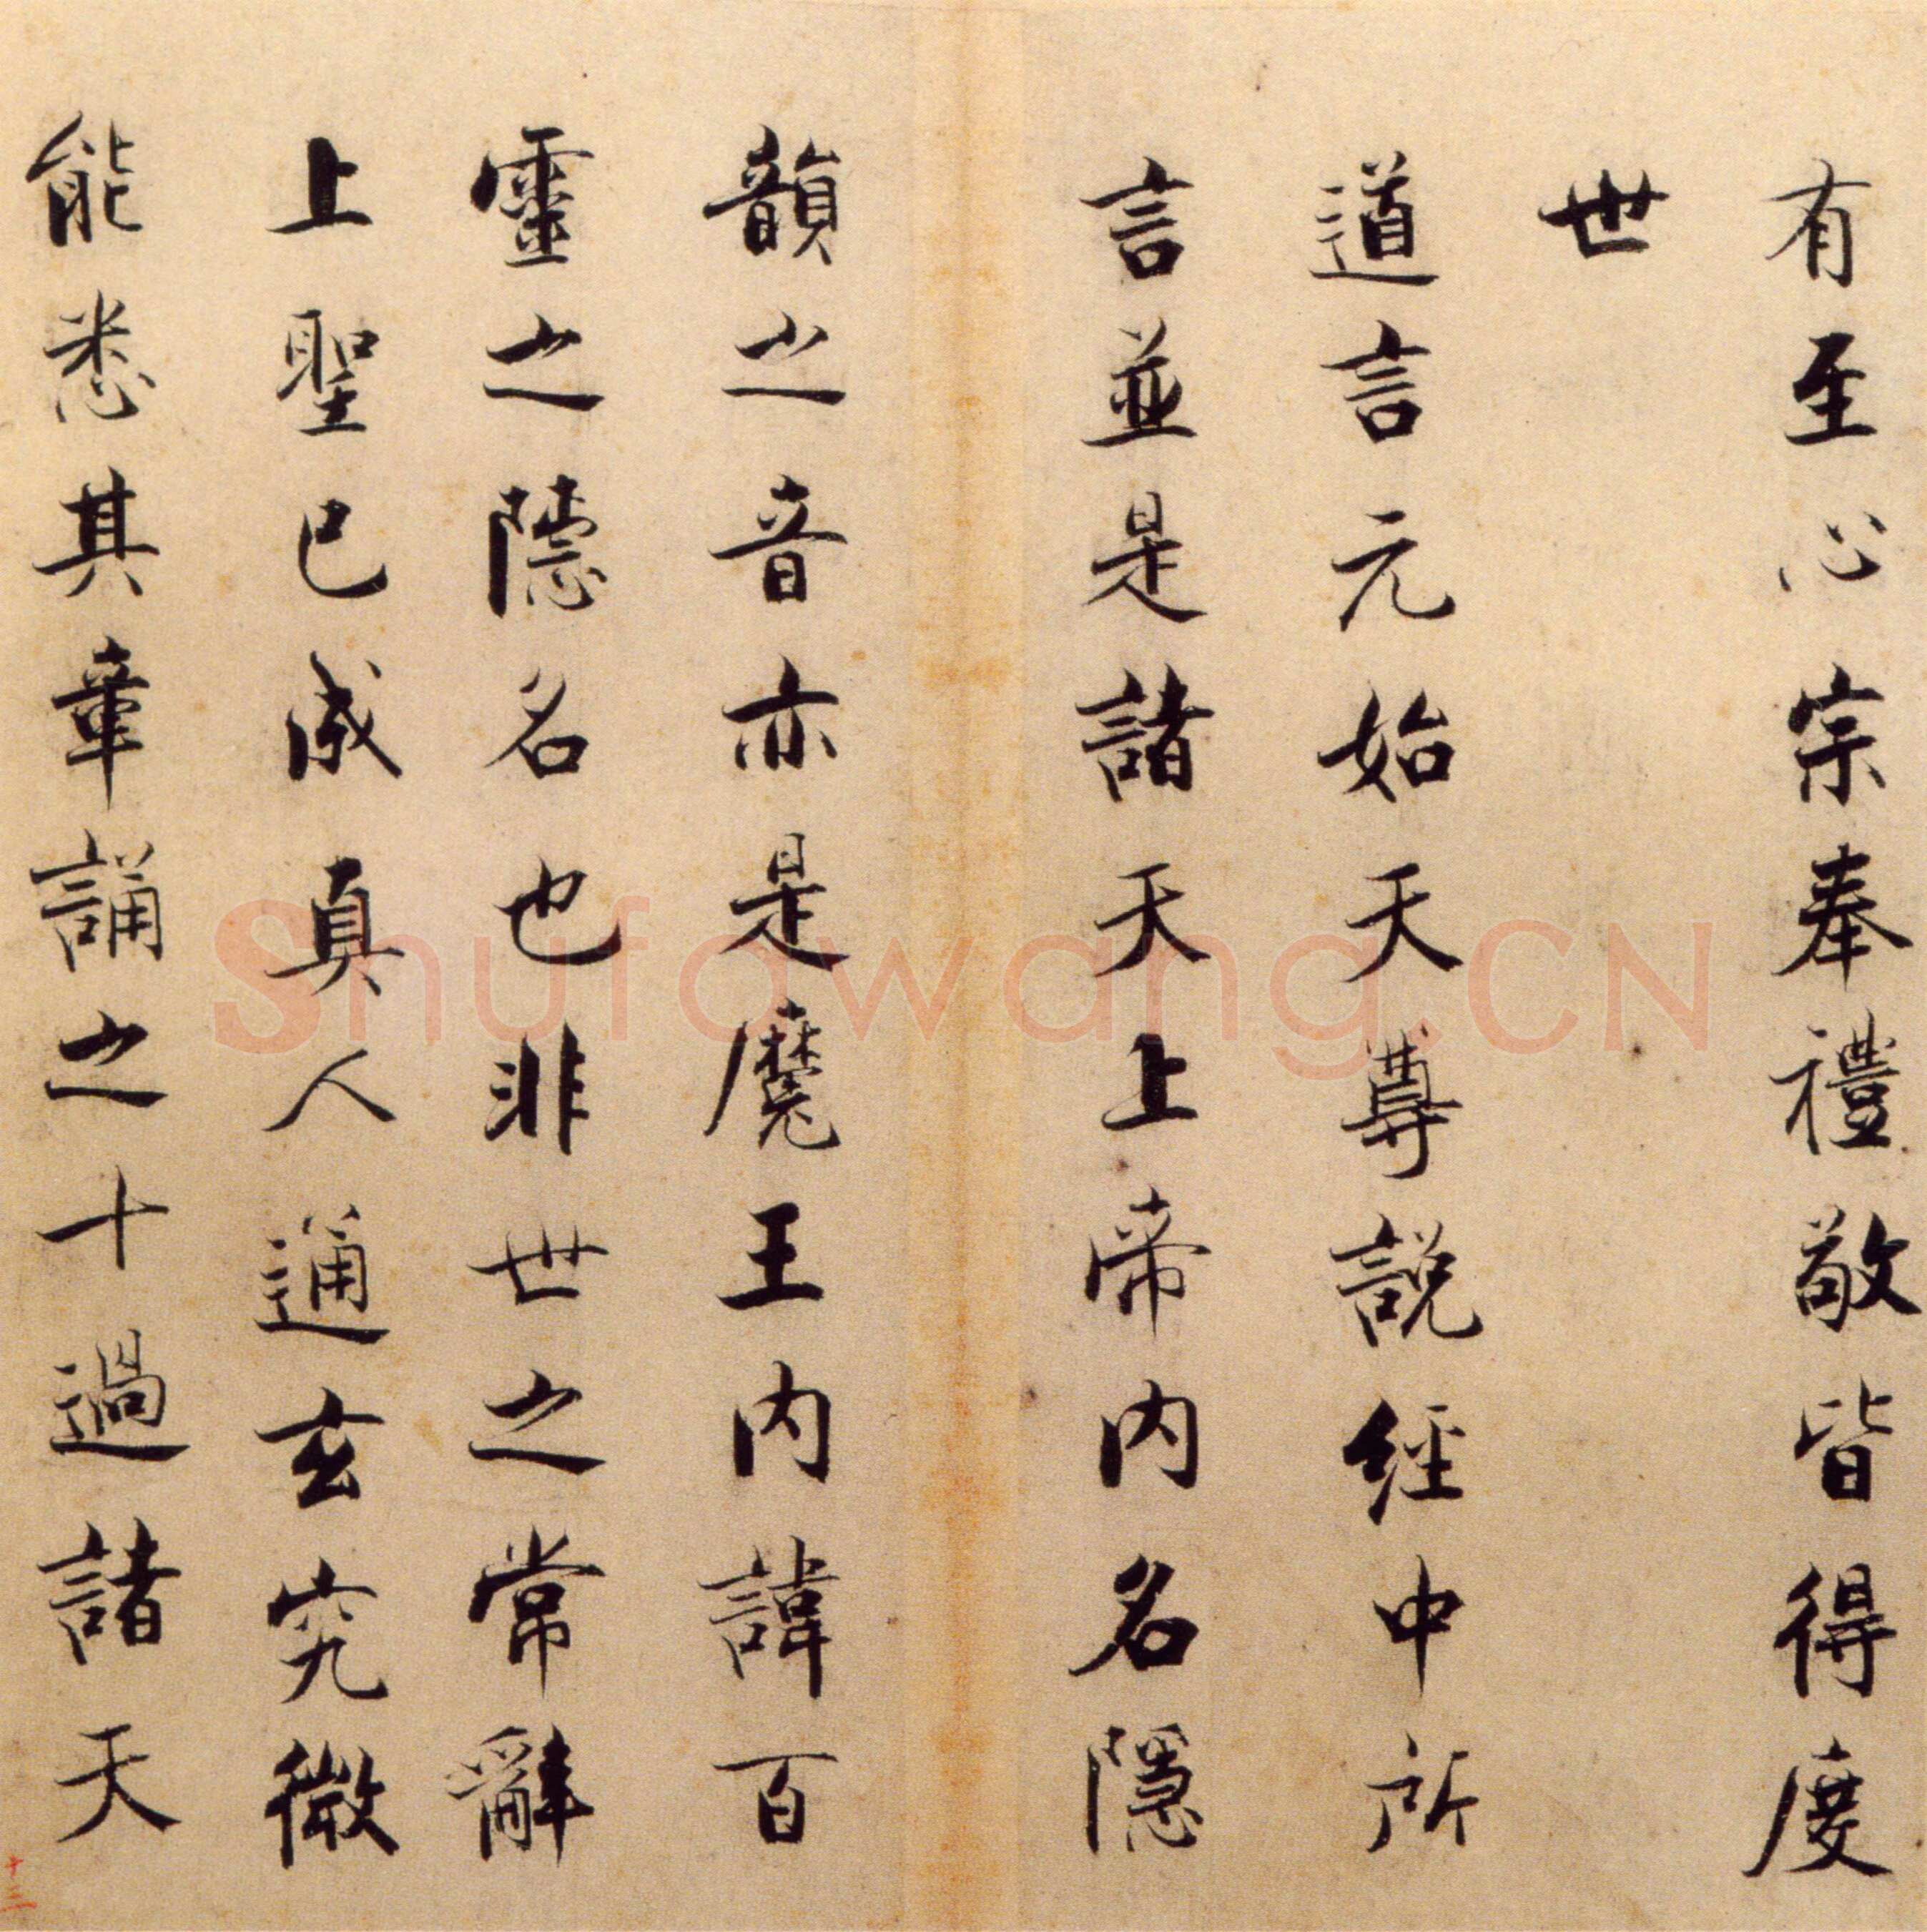 有至心宗奉禮敬皆得度
世
道言元始天尊説經中所
言並是諸天上帝内名隱
韻之音亦是魔王内諱百
靈之隱名也非世之常辭
上聖已成真人通玄究微
能悉其章誦之十過諸天
十三
Shufawang.CN